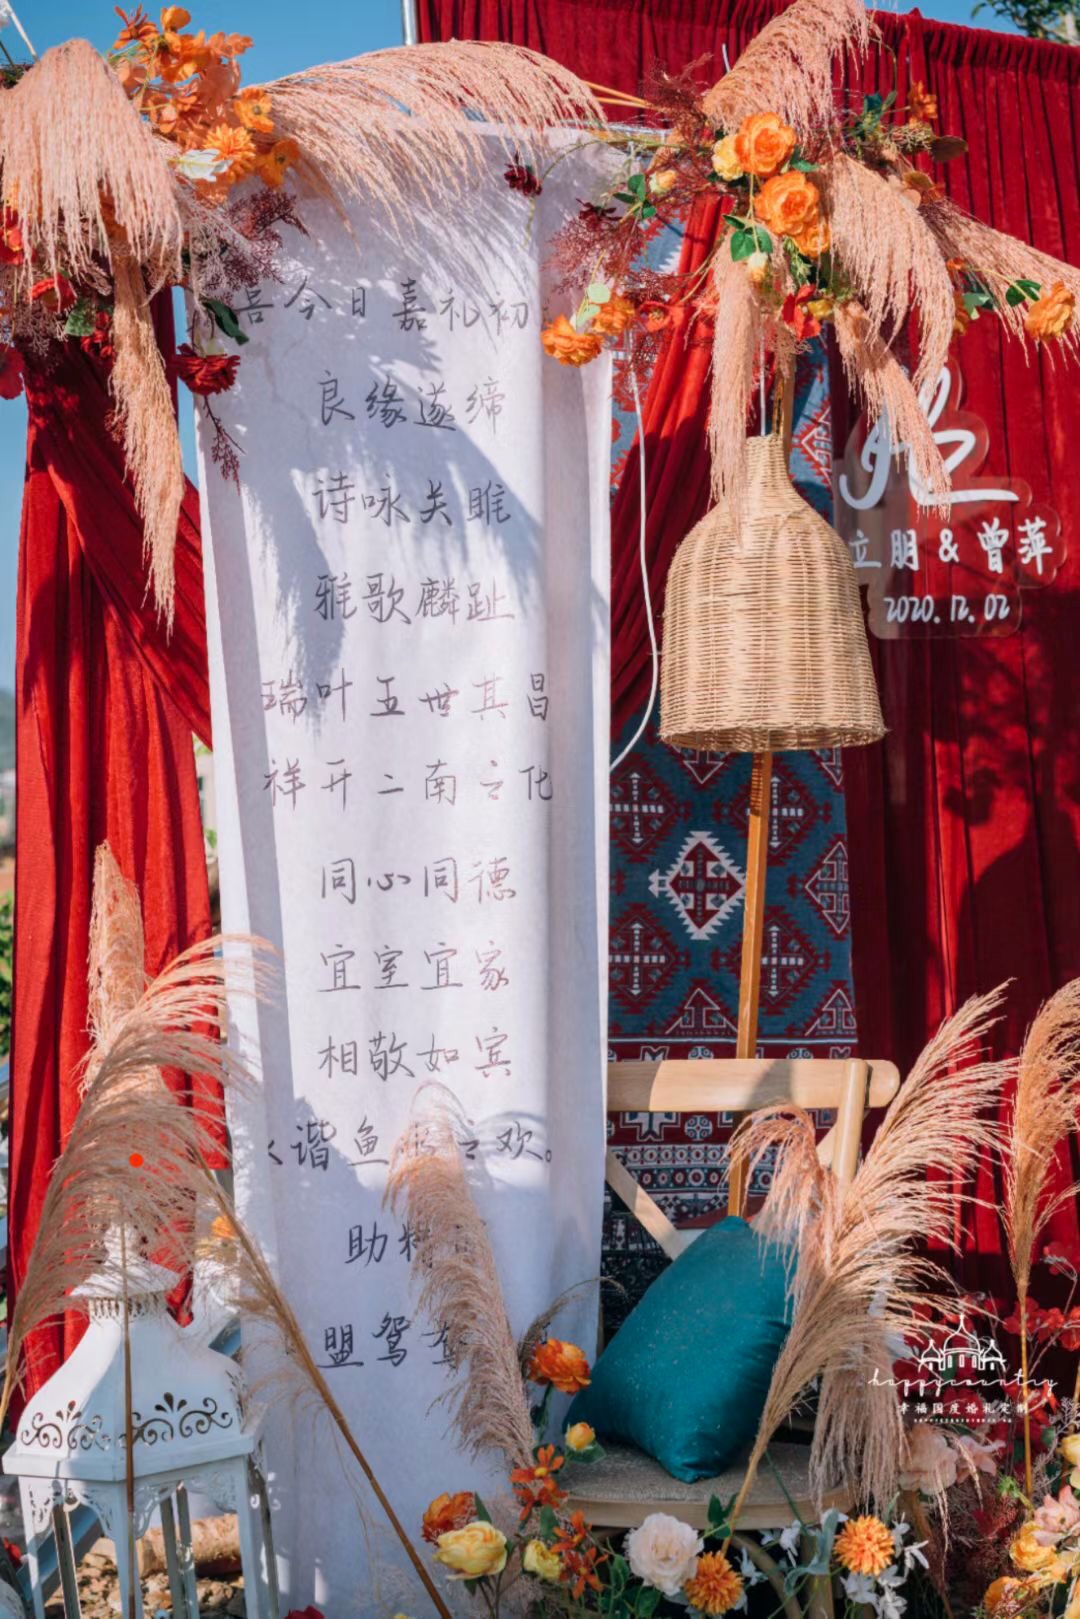 喜今日嘉礼初
良缘遂缔
诗咏关雎
雅歌麟趾
瑞叶五世其昌
祥开二南之化
同心同德
宜室宜家
相敬如宾
谐鱼之欢。
助
盟鸳
立朋&曾萍
2020.12.02
happycountry
幸福国度婚礼定制